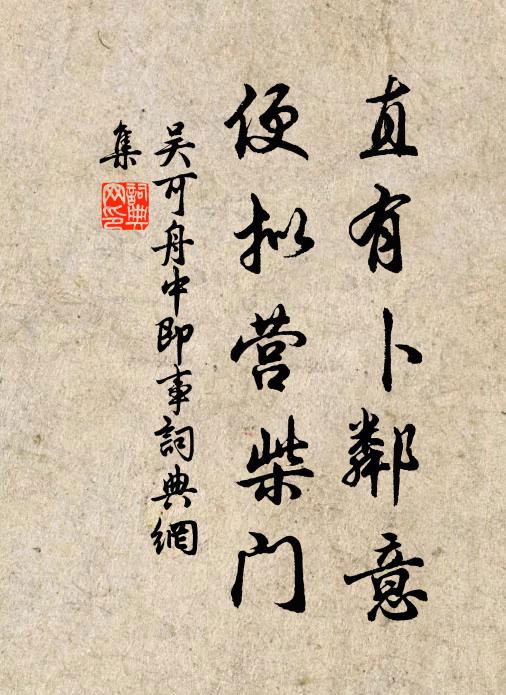 直有卜鄰意
便拟营柴门
吴可舟中即事詞典網
集
詞典网印